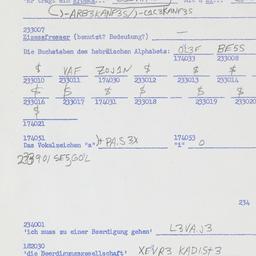 )-ARB3KANF3S/)-CQ13KANF3S
233007
Eisenfresser (benutzt? Bedeutung?) —
Die Buchstaben des hebräischen Alphabets: BE5S
174033 233008
$ VAF ZOJ1N $ $ $
233010 233011 174030 233012 233013 233014
$ $ $ $ $ $
233016 233017 174031 233018 233019 233020
$
174021
174051 174053
Das Vokalzeichen "a" PA.S3X "i" O
901 SE5GOL
234
234001
'ich muss zu einer Beerdigung gehen' L3VA.J3
182030
'die Beerdigungsgesellschaft' XEVR3 KADIS+3